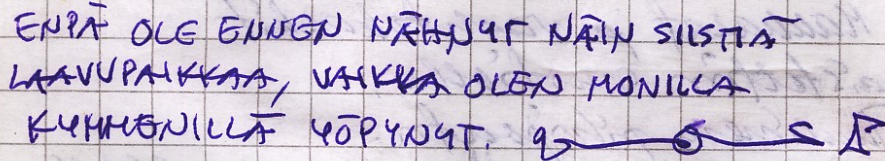 ENPÄ OLE ENNEN NÄHNYT NÄIN SIISTIÄ
LAAVUPAIKKAA, VAIKKA OLEN MONILLA
KYMMENILLÄ YÖPYNYT.